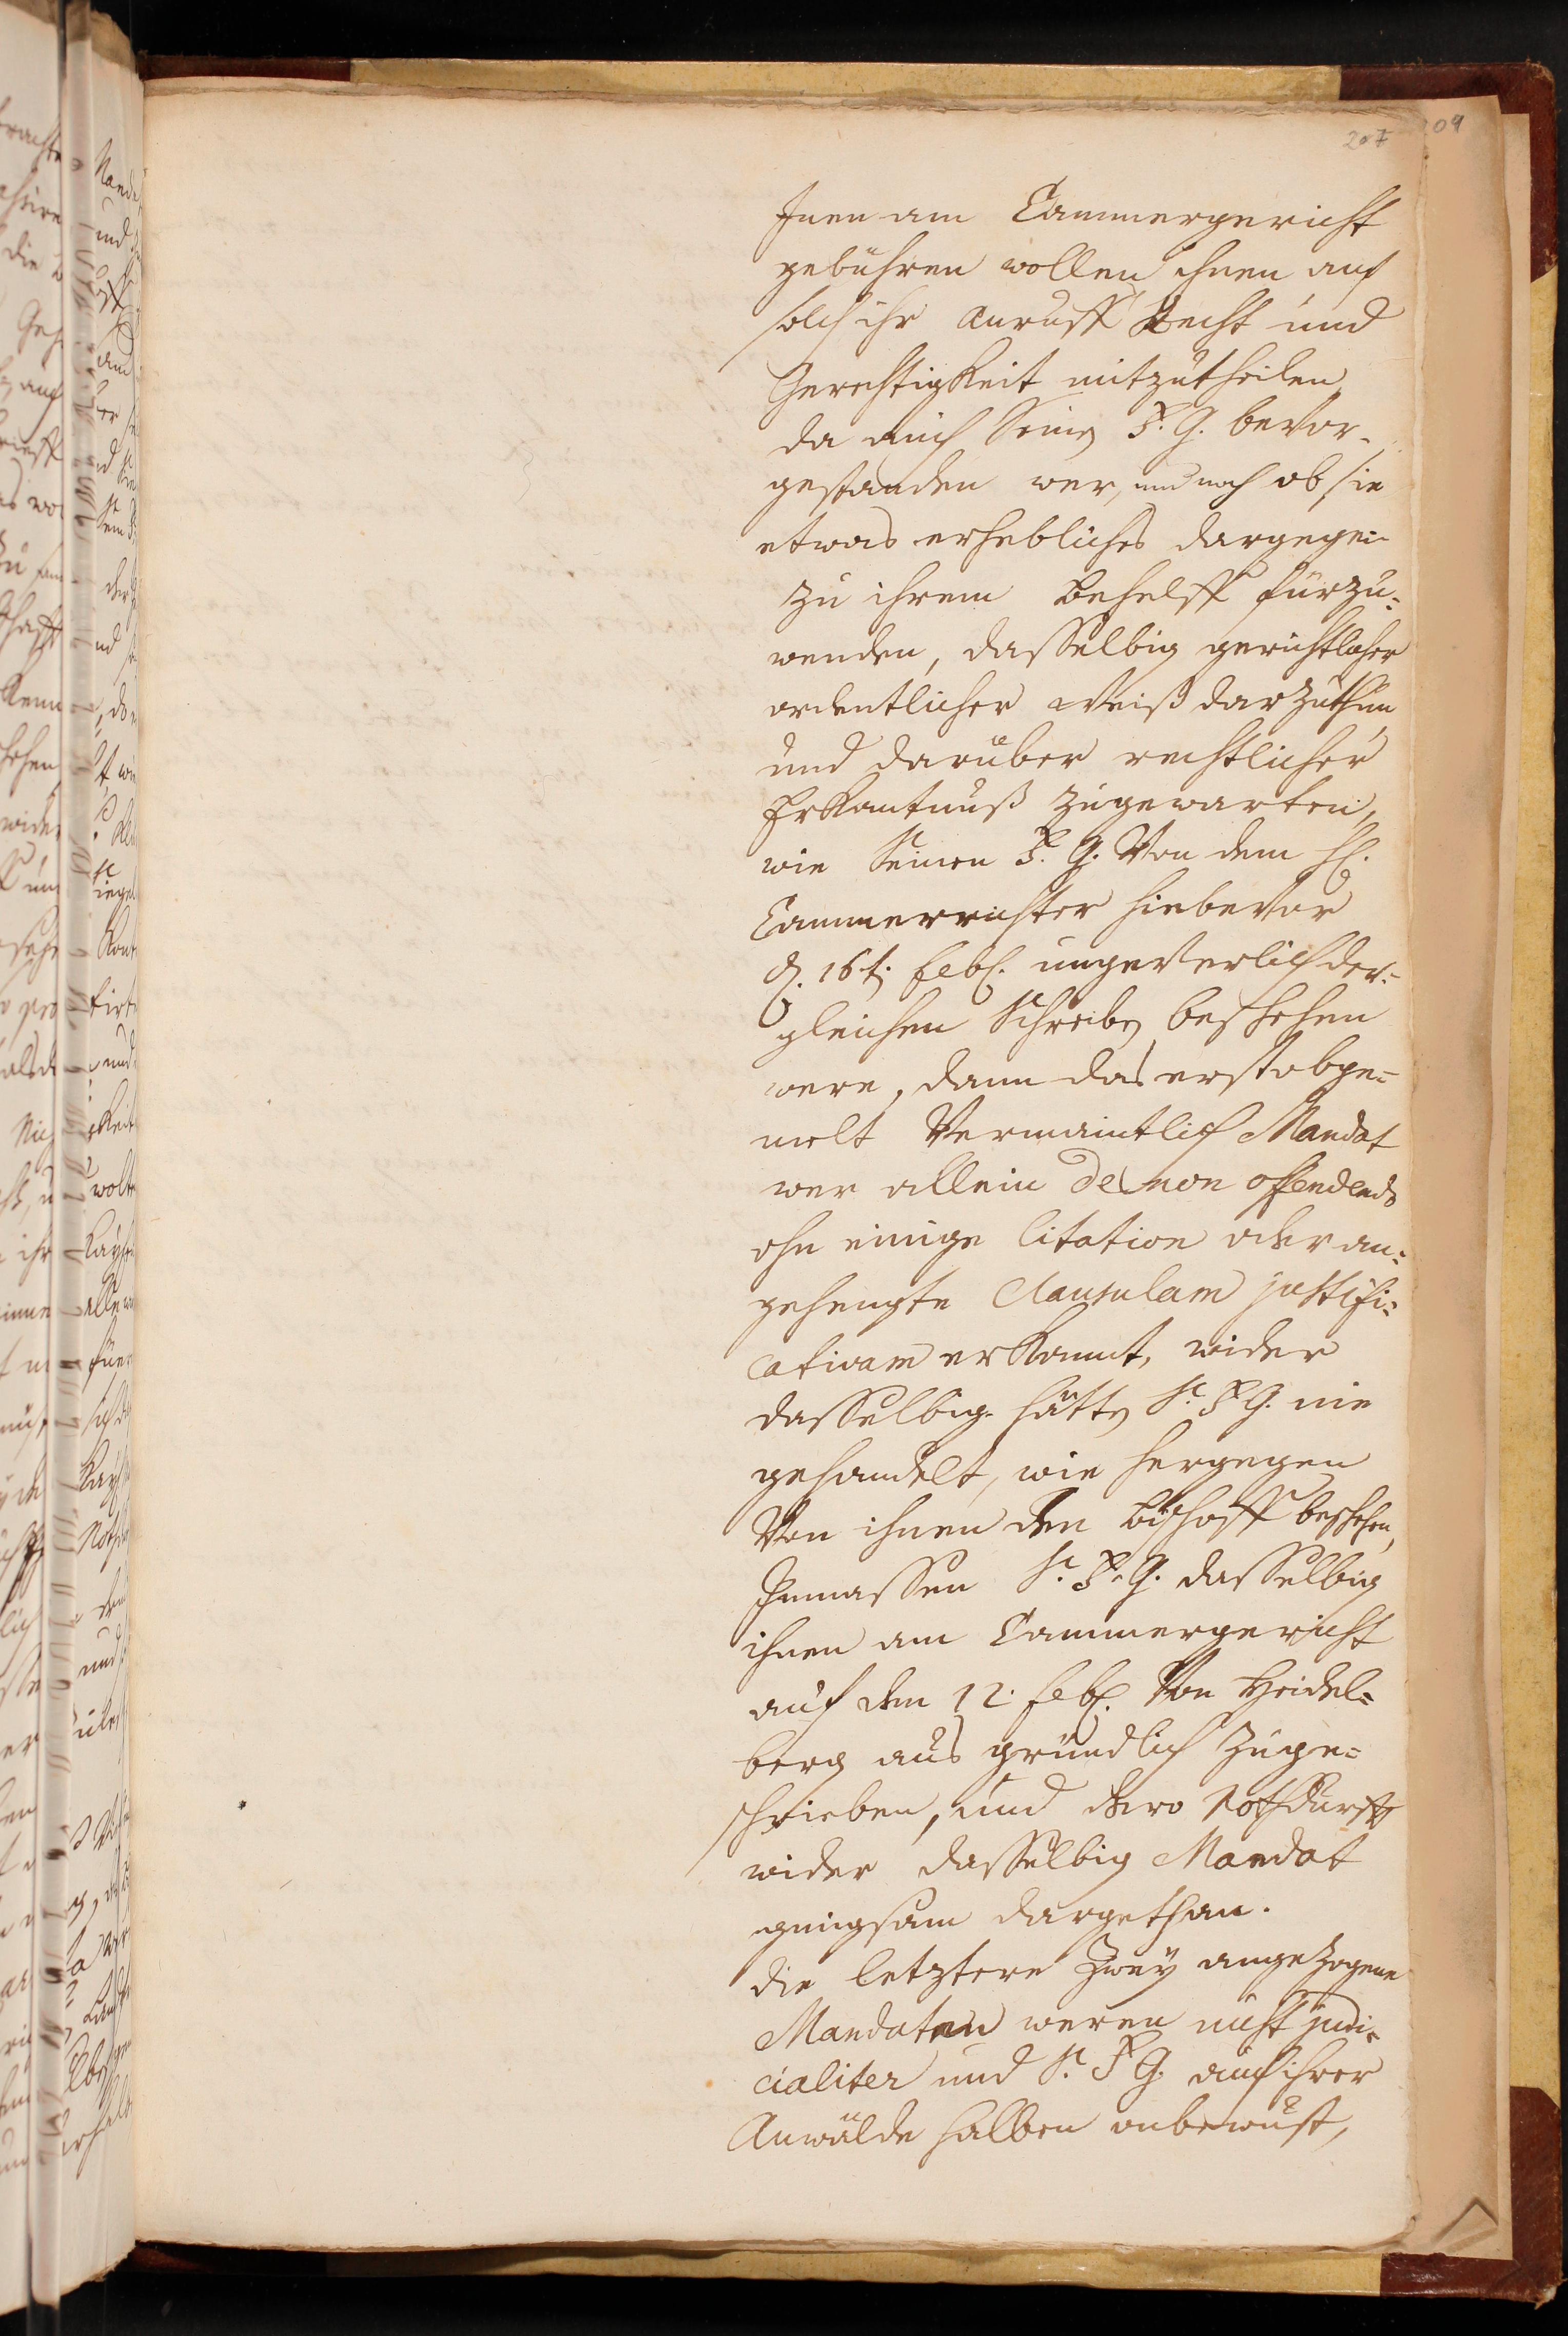 207
209
Jnen am Cammergericht
gebühren wollen ihnen auf
solch ihr Anruff Recht und
Gerechtigkeit mitzutheilen,
da auch Seing F. G. bevor-
gestanden wer, und noch ob sie
etwas erhebliches dargegen
zu ihrem Behelff fürzu-
wenden, dasselbig gerichtlicher
ordentlicher Weiß darzuthun,
und darüber rechtlicher
Erkantnuß zugewarten,
wie Seinen F. G. Von dem H.
Cammerrichter hiebevor
d. 16t. Feb. ungeverlich der-
gleichen Schreibe beschehen
were, dann das erst abge-
melt Vermaintlich Mandat
wer allein de non offendendo
ohn einige Citation oder an-
gehengte Clausulam justifi-
cativam erkannt, wider
dasselbig hätte S. F. G. nie
gehandelt, wie hergegen
Von ihnen den Bischoff beschehen,
Inmassen S. F. G. dasselbig
ihnen am Cammergericht
auf den 12. Feb. Von Heidel-
berg aus gründlich zuge-
schrieben, und dero Nothdurfft
wider dasselbig Mandat
gnugsam dargethan.
die letztere Zwey angezogene
Mandaten weren nicht judi-
cialiter und S. F. G. auch ihrer
Anwälde halben onbewust,